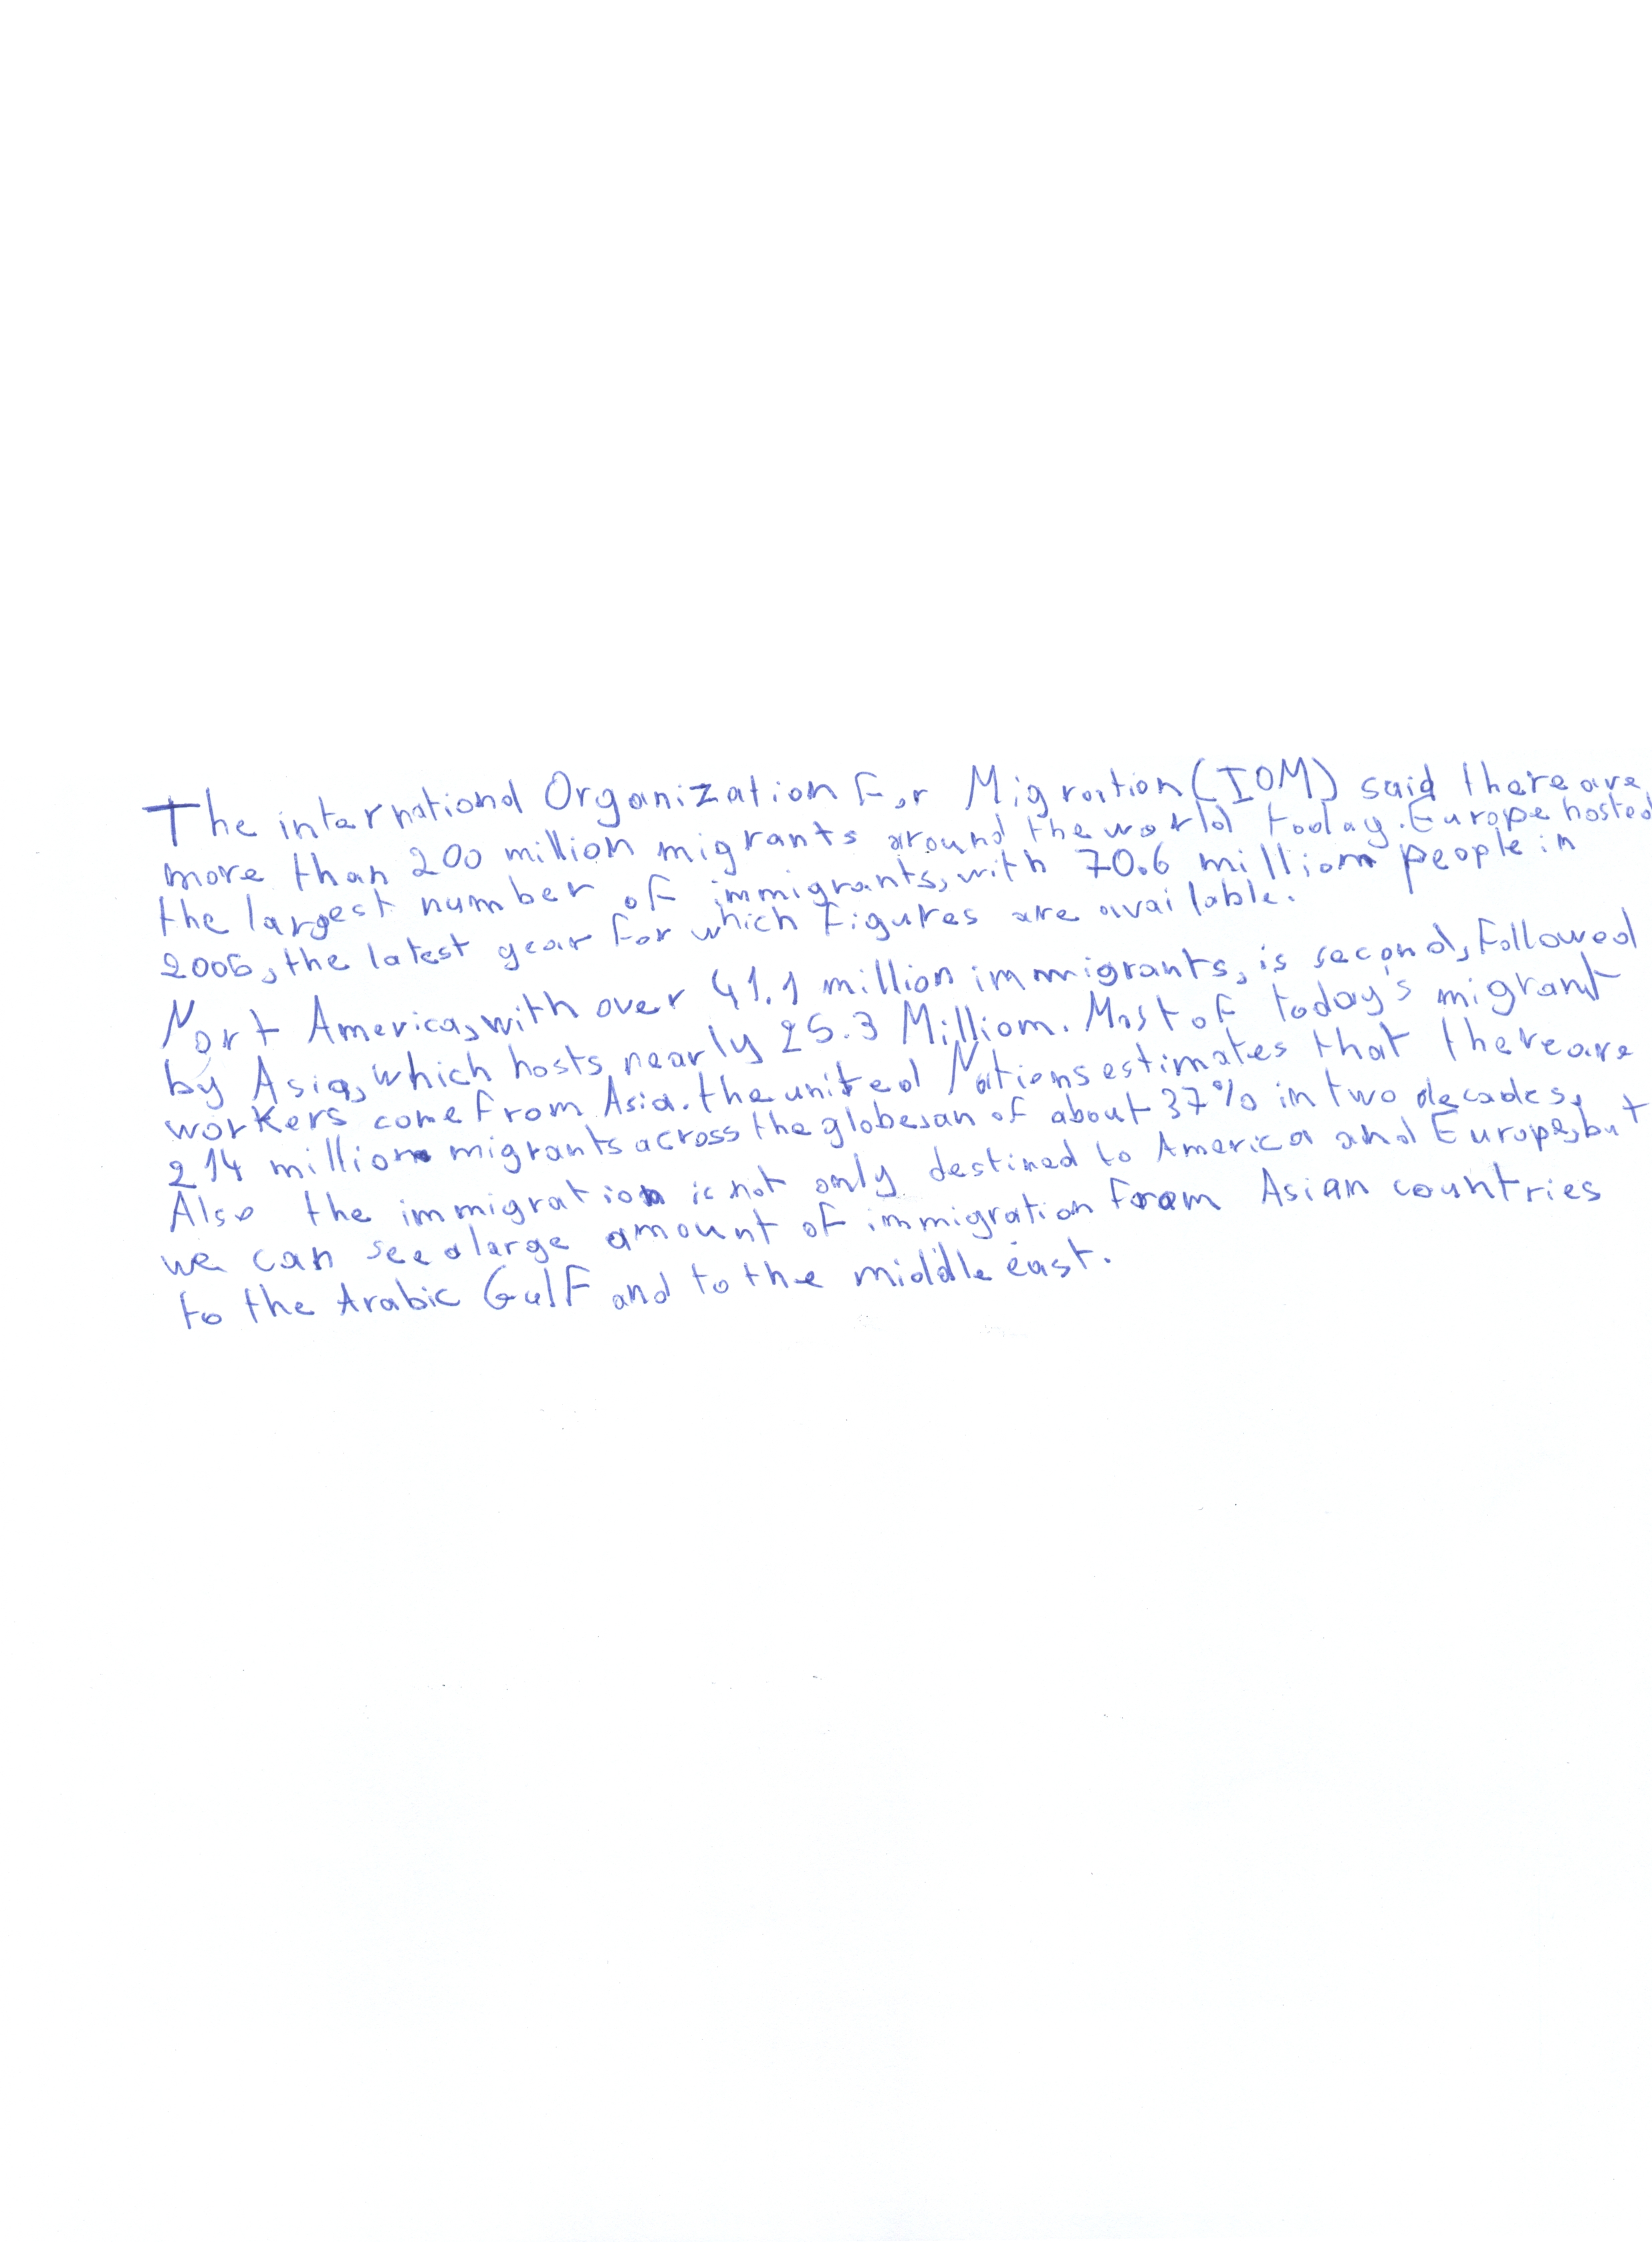 The international Organization For Migration (IOM) said there are
more than 200 million migrants around the world today. Europe hosted
the largest number of immigrants, with 70.6 million people in
2006, the latest year for which Figures are available.
Nort America, with over 41.1 million immigrants, is second, Followed
by Asia, which hosts nearly 25.3 Million. Most of today's migrant
workers come From Asia. the united Nations estimates that there are
214 million migrants across the globe, an of about 37% in two decades,
Also the immigration is not only destined to America and Europe, but
we can see a large amount of immigration From Asian countries
to the Arabic Gulf and to the middle east.